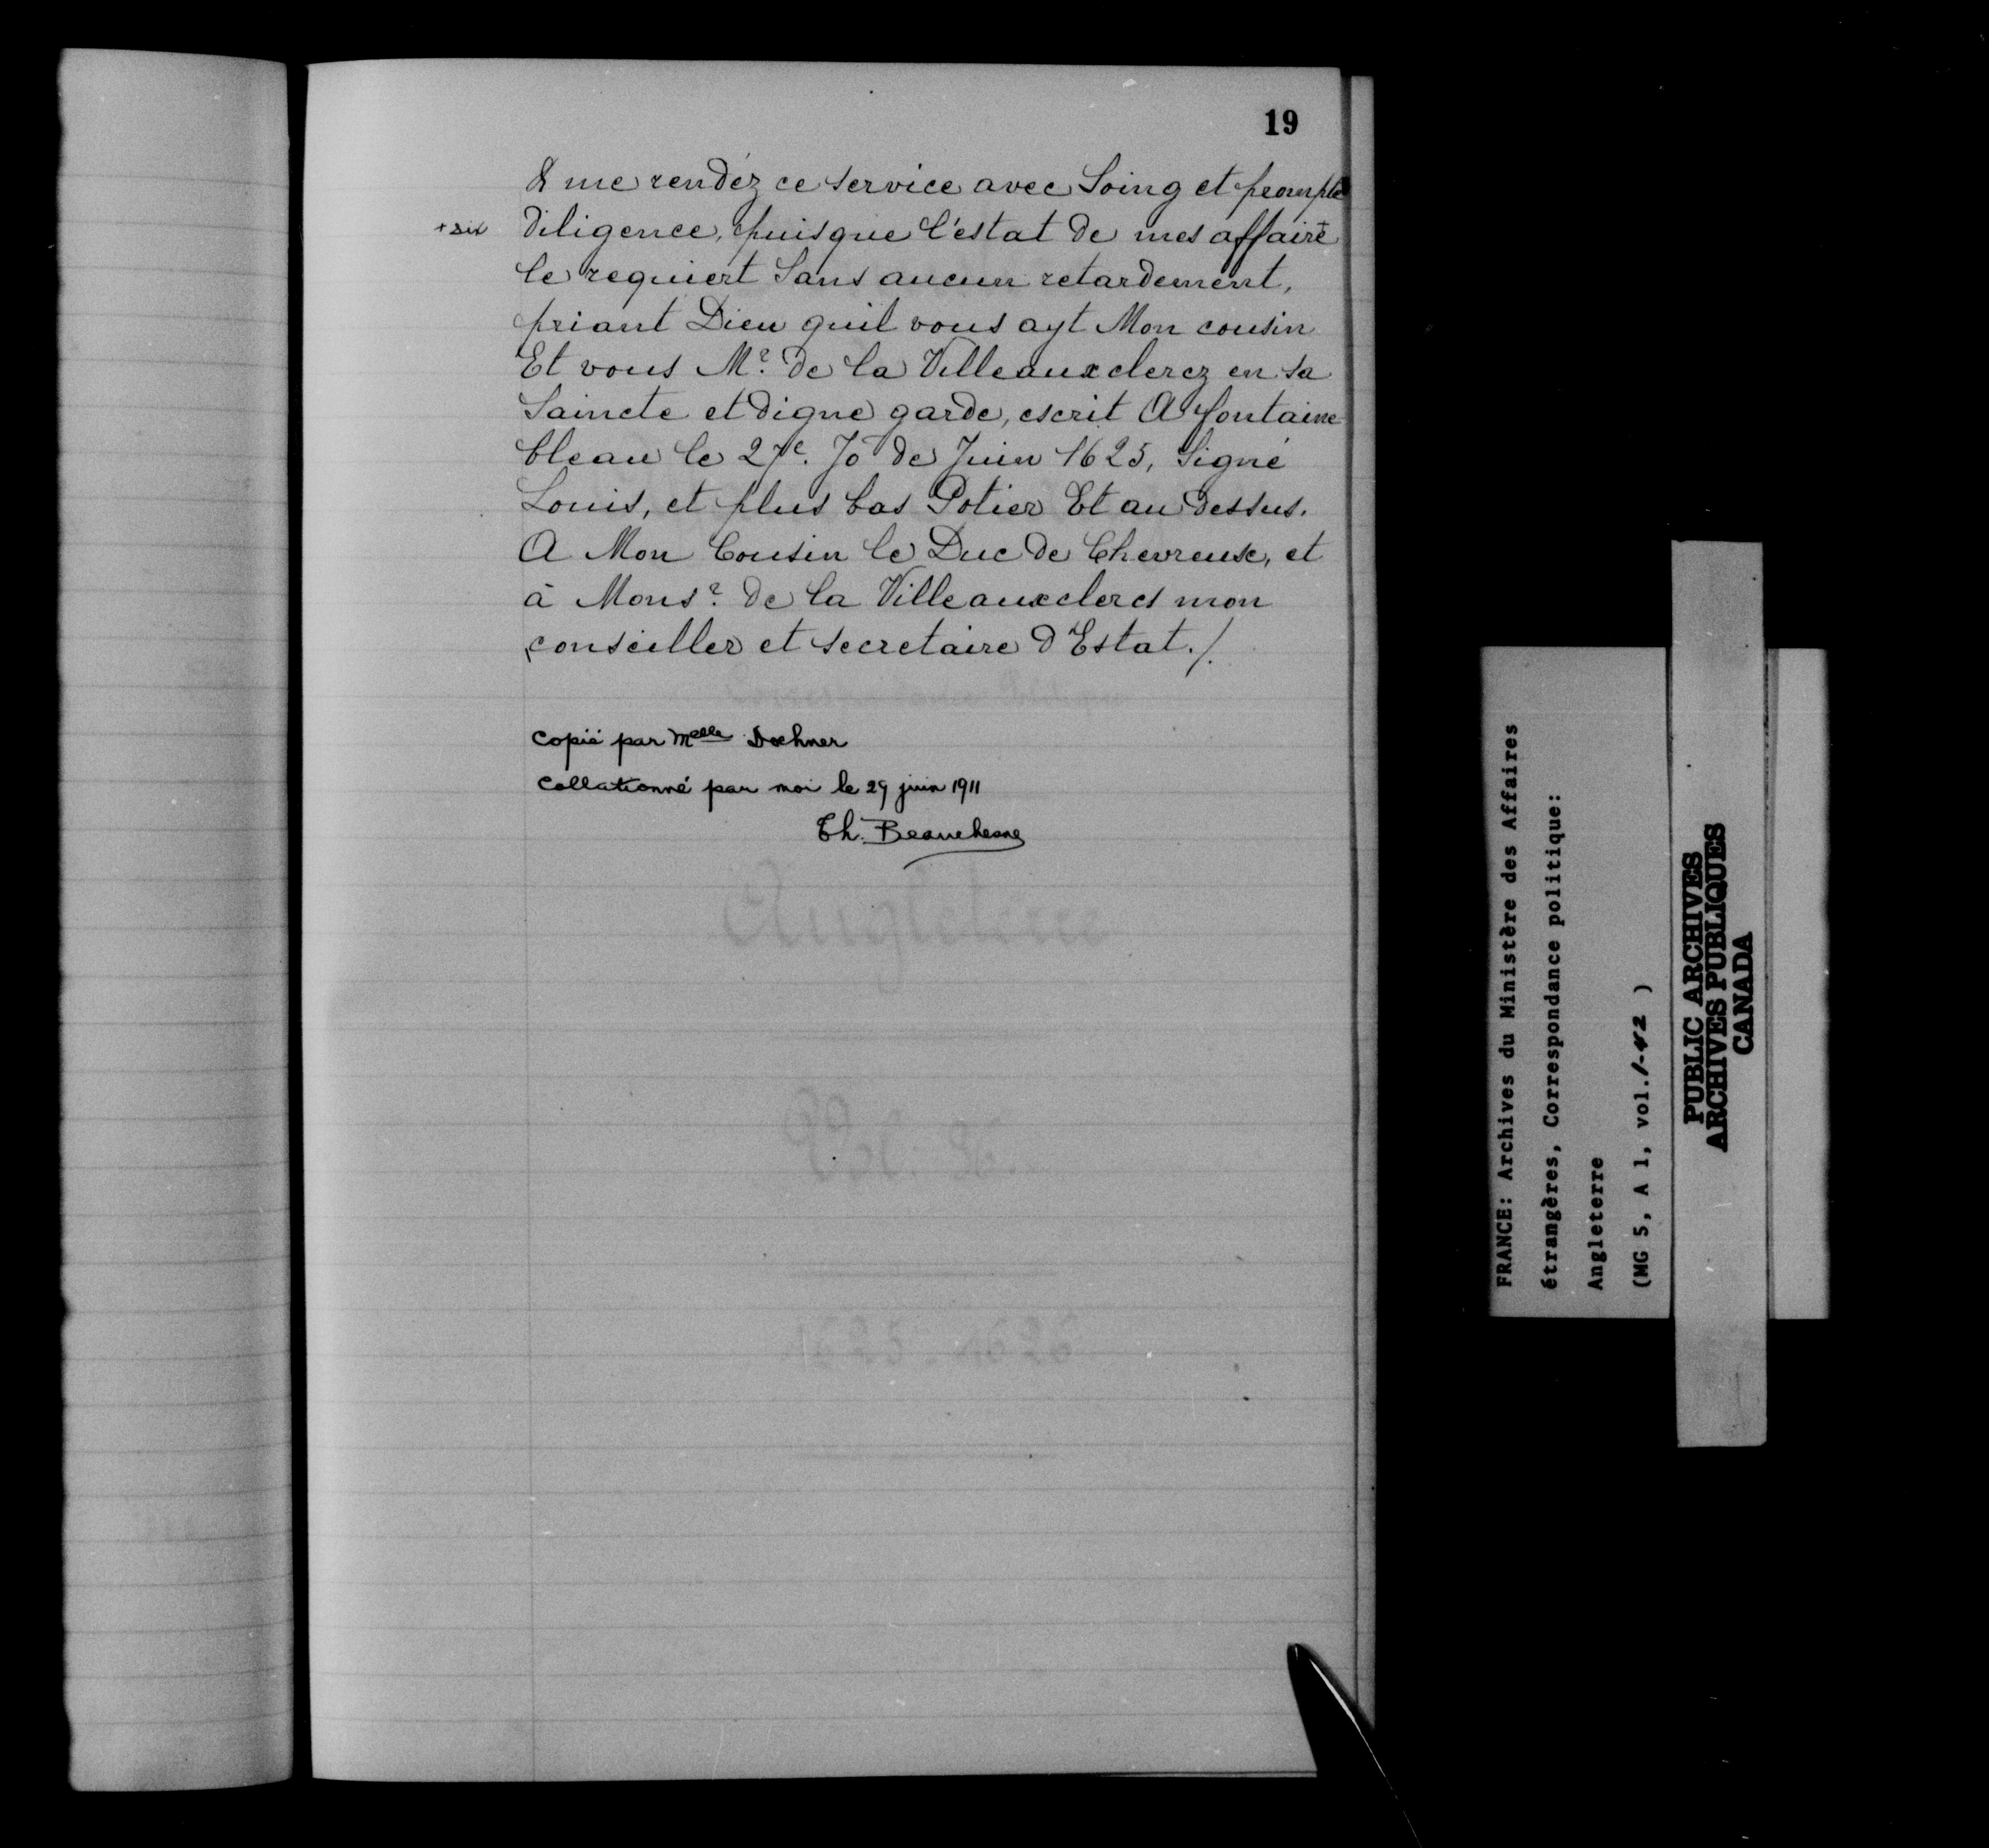 19
& me rendéz ce service avec Soing et prompte
+ six
diligence, puisque l'éstat de mes affaire
le requiert Sans aucun retardement,
priant Dieu quil vous ayt Mon cousin
Et vous Mr. de la Villeauxclercz en sa
Saincte et digne garde, escrit A fontaine
bleau le 27e. Jō de Juin 1625, Signé
Louis, et plus bas Potier Et au dessus.
A Mon Cousin le Duc de Chevreuse, et
à Monsr. de la Villeauxclercs mon
conseiller et secretaire d'Estat./.
Copié par Melle Dochner
Collationné par moi le 29 juin 1911
Th. Beauchesne
Angleterre
Vol. 36.
1625-1626
FRANCE: Archives du Ministère des Affaires
étrangères, Correspondance politique:
Angleterre
(MG 5, A 1, vol. 1-42 )
PUBLIC ARCHIVES
ARCHIVES PUBLIQUES
CANADA